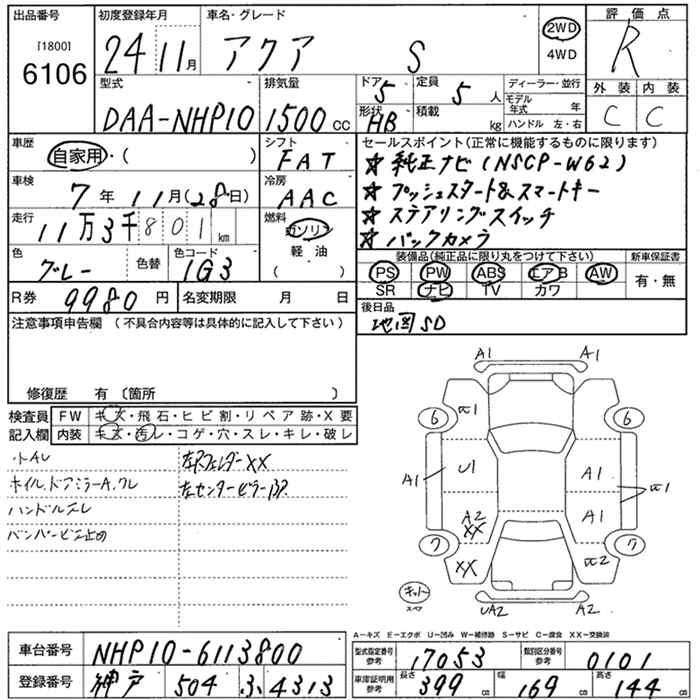 出品番号 初度登録年月 車名・グレード 評価点
[1800] 6106 24年 11月 アクア S 2WD 4WD R
型式 排気量 ドア 5 定員 5人 ディーラー・並行 外装 内装
DAA-NHP10 1500cc 形状 HB 積載 kg モデル年式 年 ハンドル 左・右 C C
車歴 シフト セールスポイント(正常に機能するものに限ります)
自家用・( ) FAT ★純正ナビ(NSCP-W62)
車検 冷房 ★プッシュスタート&スマートキー
7年11月(28日) AAC ★ステアリングスイッチ
走行 燃料 ★バックカメラ
11万3千801km ガソリン 軽油 ( )
装備品(純正品に限り丸をつけて下さい) 新車保証書
色 色替 色コード PS PW ABS エアB AW 有・無
グレー 1G3 SR ナビ TV カワ
R券 9980円 名変期限 月 日 後日品
注意事項申告欄(不具合内容等は具体的に記入して下さい) 地図SD
修復歴 有〔箇所 〕
検査員 FW キズ・飛石・ヒビ割・リペア跡・X要
記入欄 内装 キズ・汚レ・コゲ・穴・スレ・キレ・破レ
小AU 左Rフェンダーxx
ホイル,ドアミラーA,スレ 左センターピラー
ハンドルスレ
バンパービス止め
A1 A1
6 6
A1 U1 A1
A2 XX A1
7 7
XX
キット スペア
UA2 A2
A−キズ E−エクボ U−凹み W−補修跡 S−サビ C−腐食 XX−交換済
車台番号 NHP10-6113800 型式指定番号 参考 17053 類別区分番号 参考 0101
登録番号 神戸 504 ふ 4313 車庫証明用 参考 長さ 399cm 幅 169cm 高さ 144cm